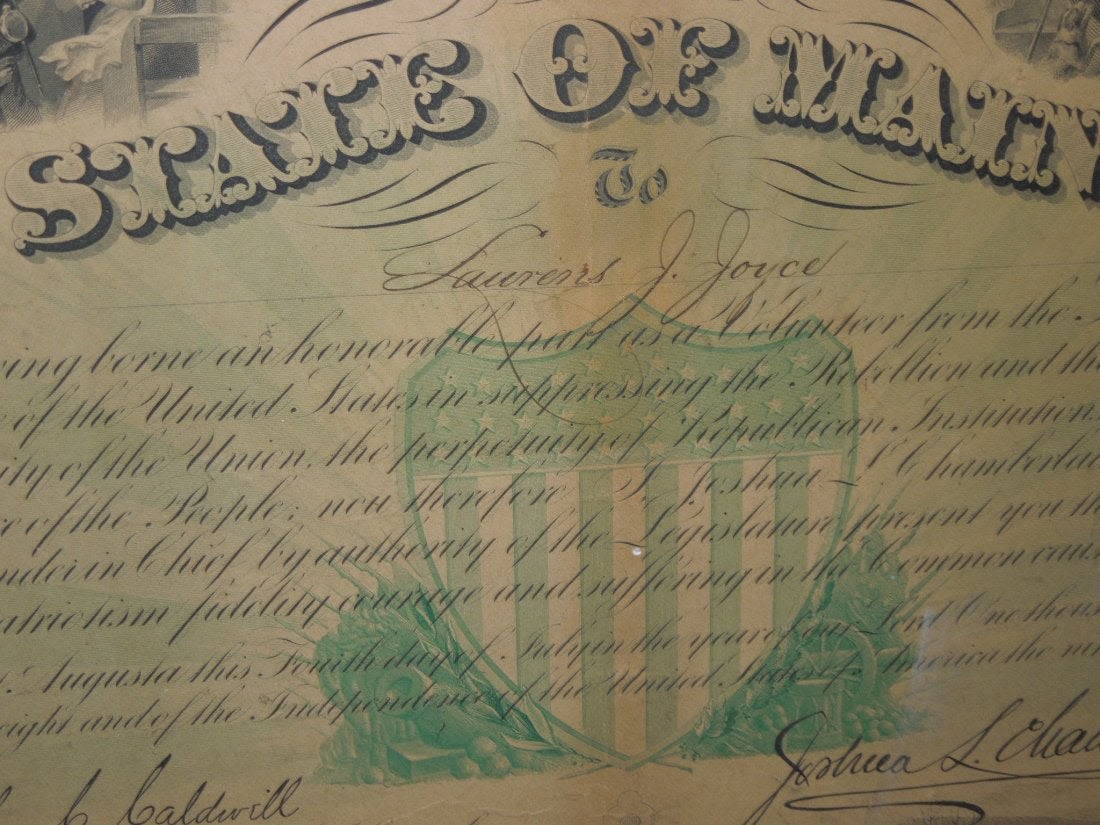 STATE OF MAIN
To
Laurens J. Joyce
ing borne an honorable part as a Volunteer from the
of the United States in suppressing the Rebellion and th
ity of the Union, the perpetuity of Republican Institution
e of the People; now therefore I, Joshua L Chamberla
nder in Chief by authority of the Legislature, present you th
atriotism fidelity courage and suffering in the Common caus
Augusta this Fourth day of July in the year of our Lord One thous
eight and of the Independence of the United States of America the nin
C Caldwell
Joshua L. Cha